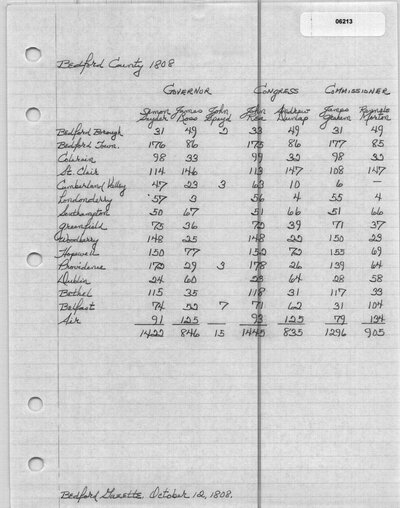 06213
Bedford County 1808
Governor Congress Commissioner
Simon James John John Andrew James Reynolds
Snyder Ross Spayd Rea Dunlap Graham Morton
Bedford Borough 31 49 2 33 49 31 49
Bedford Town. 176 86 175 86 177 85
Colerain 98 33 99 32 98 32
St. Clair 114 146 113 147 108 147
Cumberland Valley 47 23 3 63 10 6 —
Londonderry 57 3 56 4 55 4
Southampton 50 67 51 66 51 66
Greenfield 75 36 72 39 71 37
Woodberry 148 25 148 22 150 23
Hopewell 150 77 152 72 155 69
Providence 172 29 3 178 26 139 64
Dublin 24 60 23 64 28 58
Bethel 115 35 118 31 117 33
Belfast 74 52 7 71 62 31 104
Air 91 125 93 125 79 134
1422 846 15 1445 835 1296 905
Bedford Gazette, October 12, 1808.